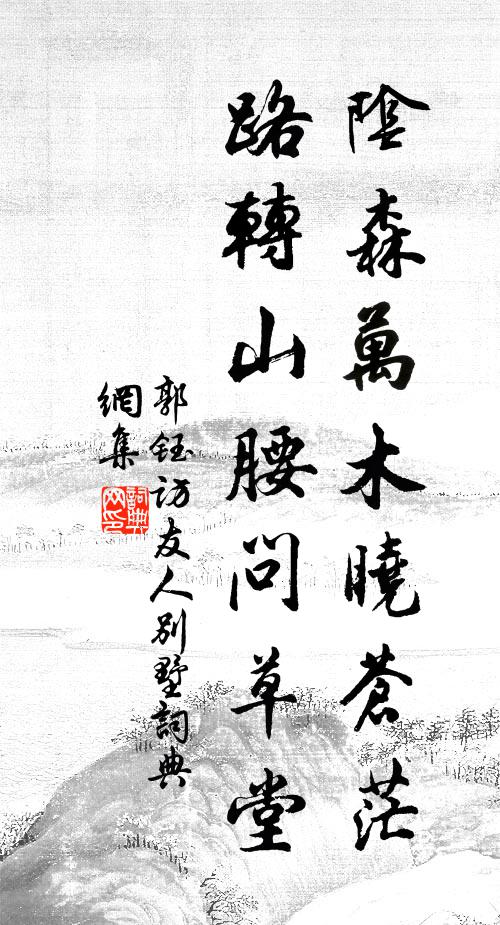 陰森萬木曉蒼茫
路轉山腰問草堂
郭鈺訪友人別墅詞典
網集
詞典網印